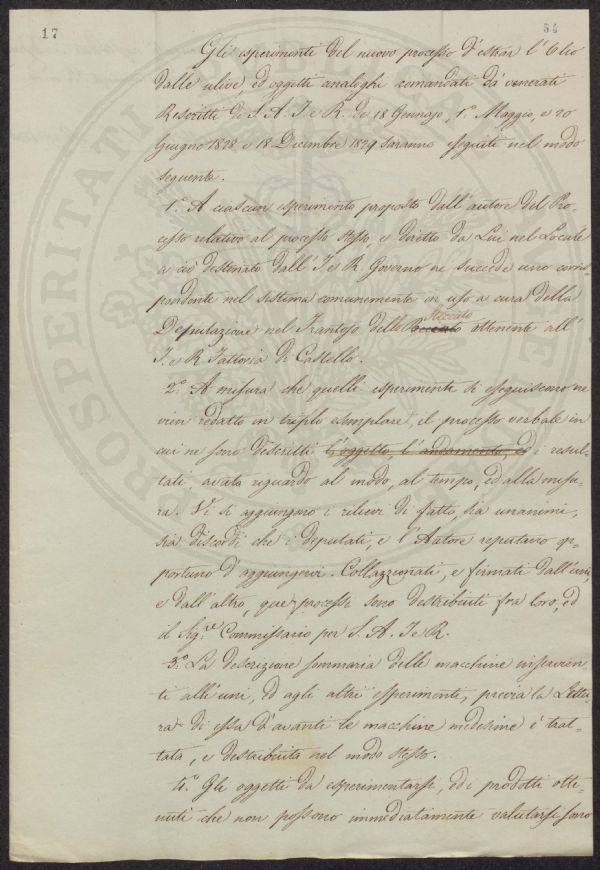 17
54
Gli esperimenti del nuovo processo d'estrar l'Olio
dalle ulive, ed oggetti analoghi comandati da' venerati
Rescritti di S. A. I. e R. de 18 Gennajo, 1.º Maggio, e 20
Giugno 1828 e 18 Dicembre 1829 saranno eseguiti nel modo
seguente.
1.º A ciascun esperimento proposto dall'autore del Pro-
cesso relativo al processo stesso, e diretto da Lui nel Locale
a ciò destinato dall'I. e R. Governo ne succede uno corris-
pondente nel sistema comunemente in uso a cura della
Steccuto
Deputazione nel Frantojo dello attenente all'
I. e R. Fattoria di Castello.
2.º A misura che quelli esperimenti si eseguiscono ne
vien redatto in triplo esemplare, il processo verbale in
cui ne sono descritti l'oggetto, l'andamento, ed i resul-
tati, avuto riguardo al modo, al tempo, ed alla misu-
ra. Vi si aggiungono i rilievi di fatto, sia unanimi,
sia discordi che i deputati, e l'Autore reputano op-
portuno d'aggiungervi. Collazzionati, e firmati dall'uni,
e dall'altro, que' processi sono destribuiti fra loro, ed
il Sig.re Commissario per S. A. I. e R.
3.º La descrizione sommaria delle macchine inservien-
ti all'uni, ed agli altri esperimenti, previa la Lettu-
ra di essa d'avanti le macchine medesime è trat-
tata, e destribuita nel modo stesso.
4.º Gli oggetti da esperimentarsi, ed i prodotti otte-
nuti che non possono immediatamente valutarsi sono
PROSPERITATI